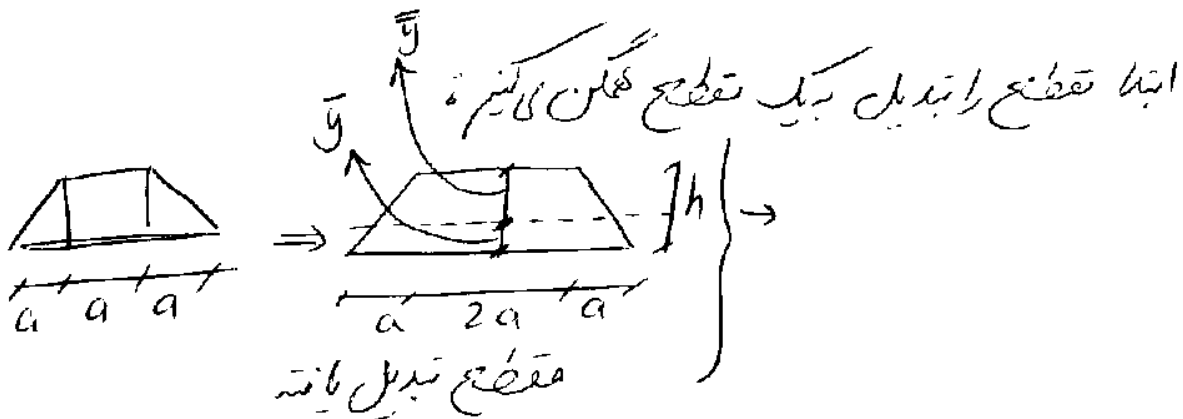 ابتدا مقطع را تبدیل به یک مقطع همگن می‌کنیم :
ȳ
ȳ̄
h
a a a
⇒
a 2a a
→
مقطع تبدیل یافته